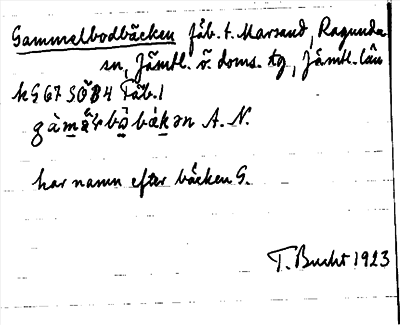 Gammelbodbäcken fäb. t. Marsund, Ragunda
sn, Jämtl. ö. doms. tg, Jämtl. län
k G 67 SÖ B4 Fäb. 1
A. N.
har namn efter bäcken G.
T. Bucht 1923